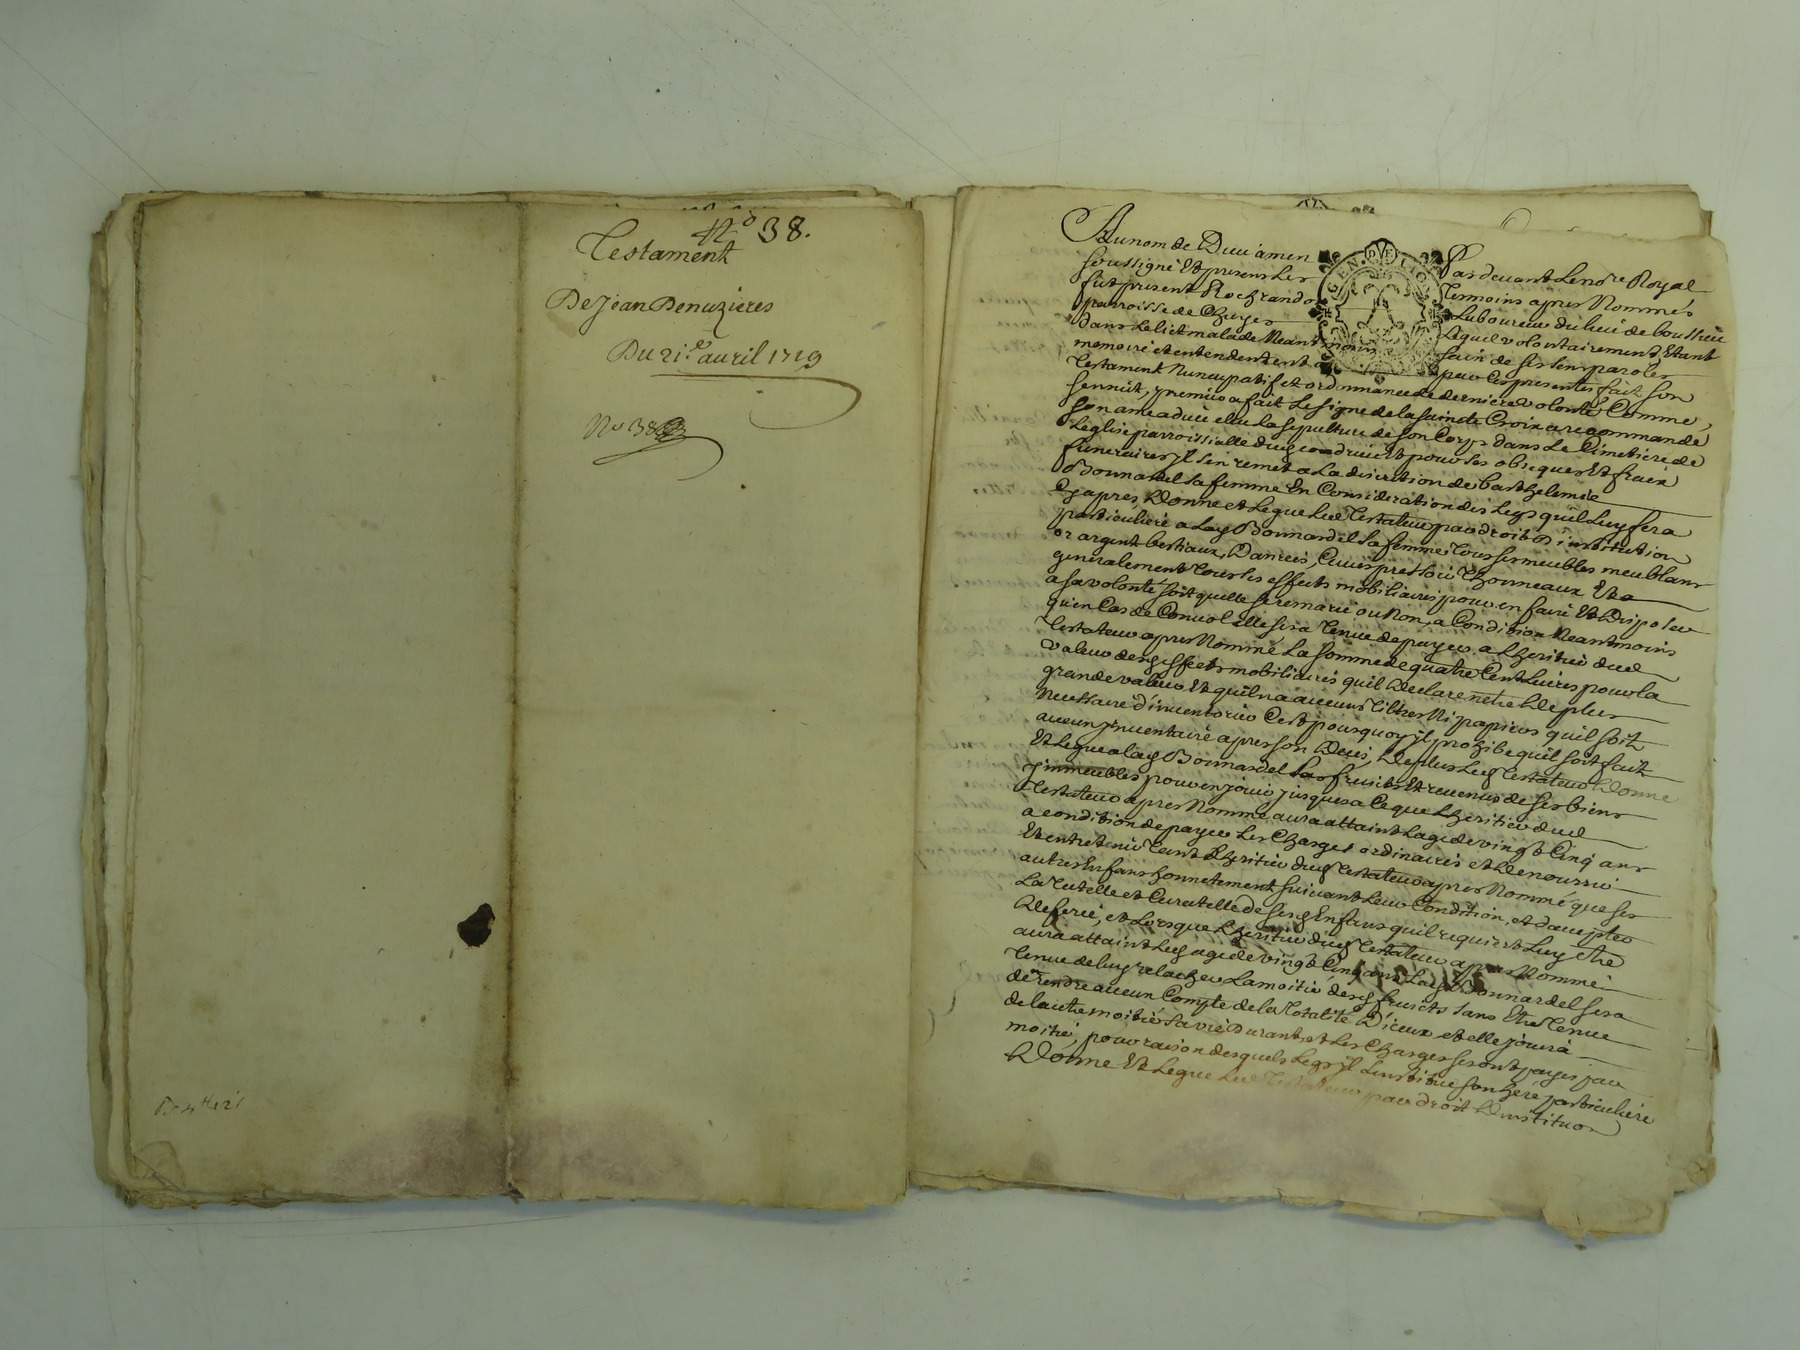 No 38.
Testament
De Jean Denuzieres
Du 21.e auril 1719
No 38
Au nom de Dieu amen Pardeuant Le no.re Royal
soussigné Et presens Les Temoins apres Nommés
fut present Roch randon Laboureur du lieu de boussieu
parroisse de Chuyes Lequel volontairement Etant
dans Le lict malade Neantmoins sain de ses sens paroles
memoire et entendement a par Ces presentes fait Son
Testament Nuncupatif et ordonnance de derniere volonté Comme
sensuit, premier a fait Le signe de la sainte Croix a recommandé
Son ame a dieu elleu La sepulture de Son Corps dans Le Cimetiere de
Leglise parroissialle dud endroit Et pour Ses obseques Et fraix
funeraires jl s'en remet a La discretion de barthelemie
Bonnardel Sa femme En Consideration des Legs quil Luy fera
Cy apres, Donne et Legue Led Testateur par droit D'institution
particuliere a Lad Bonnardel Sa femme Tous ses meubles meublans
or argent bestiaux, Danrées, Cuues pressoir Thonneaux Et a
generalement Tous ses effects mobiliaires pour en faire Et Disposer
a sa volonté soit quelle se remarie ou Non, a Condition Neantmoins
quen Cas de Conuol elle sera Tenue de payer a Lheritier dud
Testateur apres Nommé La somme de quatre Cent Liures pour la
valeur desd effects mobiliaires quil Declare netre De plus
grande valeur Et quil na aucuns Tiltres Ni papiers quil soit
Necessaire d'inuentorier Cest pourquoy jl prohibe quil soit fait
aucun jnuentaire apres son Deces, De plus Led Testateur Donne
Et Legue a lad Bonnardel Les fruits Et reuenus de ses biens
jmmeubles pour en jouir jusques a Ce que Lheritier dud
Testateur apres Nommé aura attaint Lage de vingt Cinq ans
a condition de payer Les Charges ordinaires et De nourrir
Et entretenir Tant Lheritier dud Testateur apres Nommé que ses
autres Enfans honnetement suiuant Leur Condition, et d'accepter
La Tutelle et Curatelle de sesd Enfans quil requiert Luy etre
Deferée, et Lorsque Lheritier dud Testateur apres Nommé
aura attaint Led age de vingt Cinq ans Lad Bonnardel sera
Tenue de luy relacher La moitié desd fruicts sans Etre Tenue
de rendre aucun Compte de la Totalité D'iceux et elle jouira
de lautre moitié sa vie Durant, et Les Charges seront payés par
moitié, pour raison desquels Legs jl Linstitue son heré particuliere
Donne Et Legue Led Testateur par droit D'institu͠on